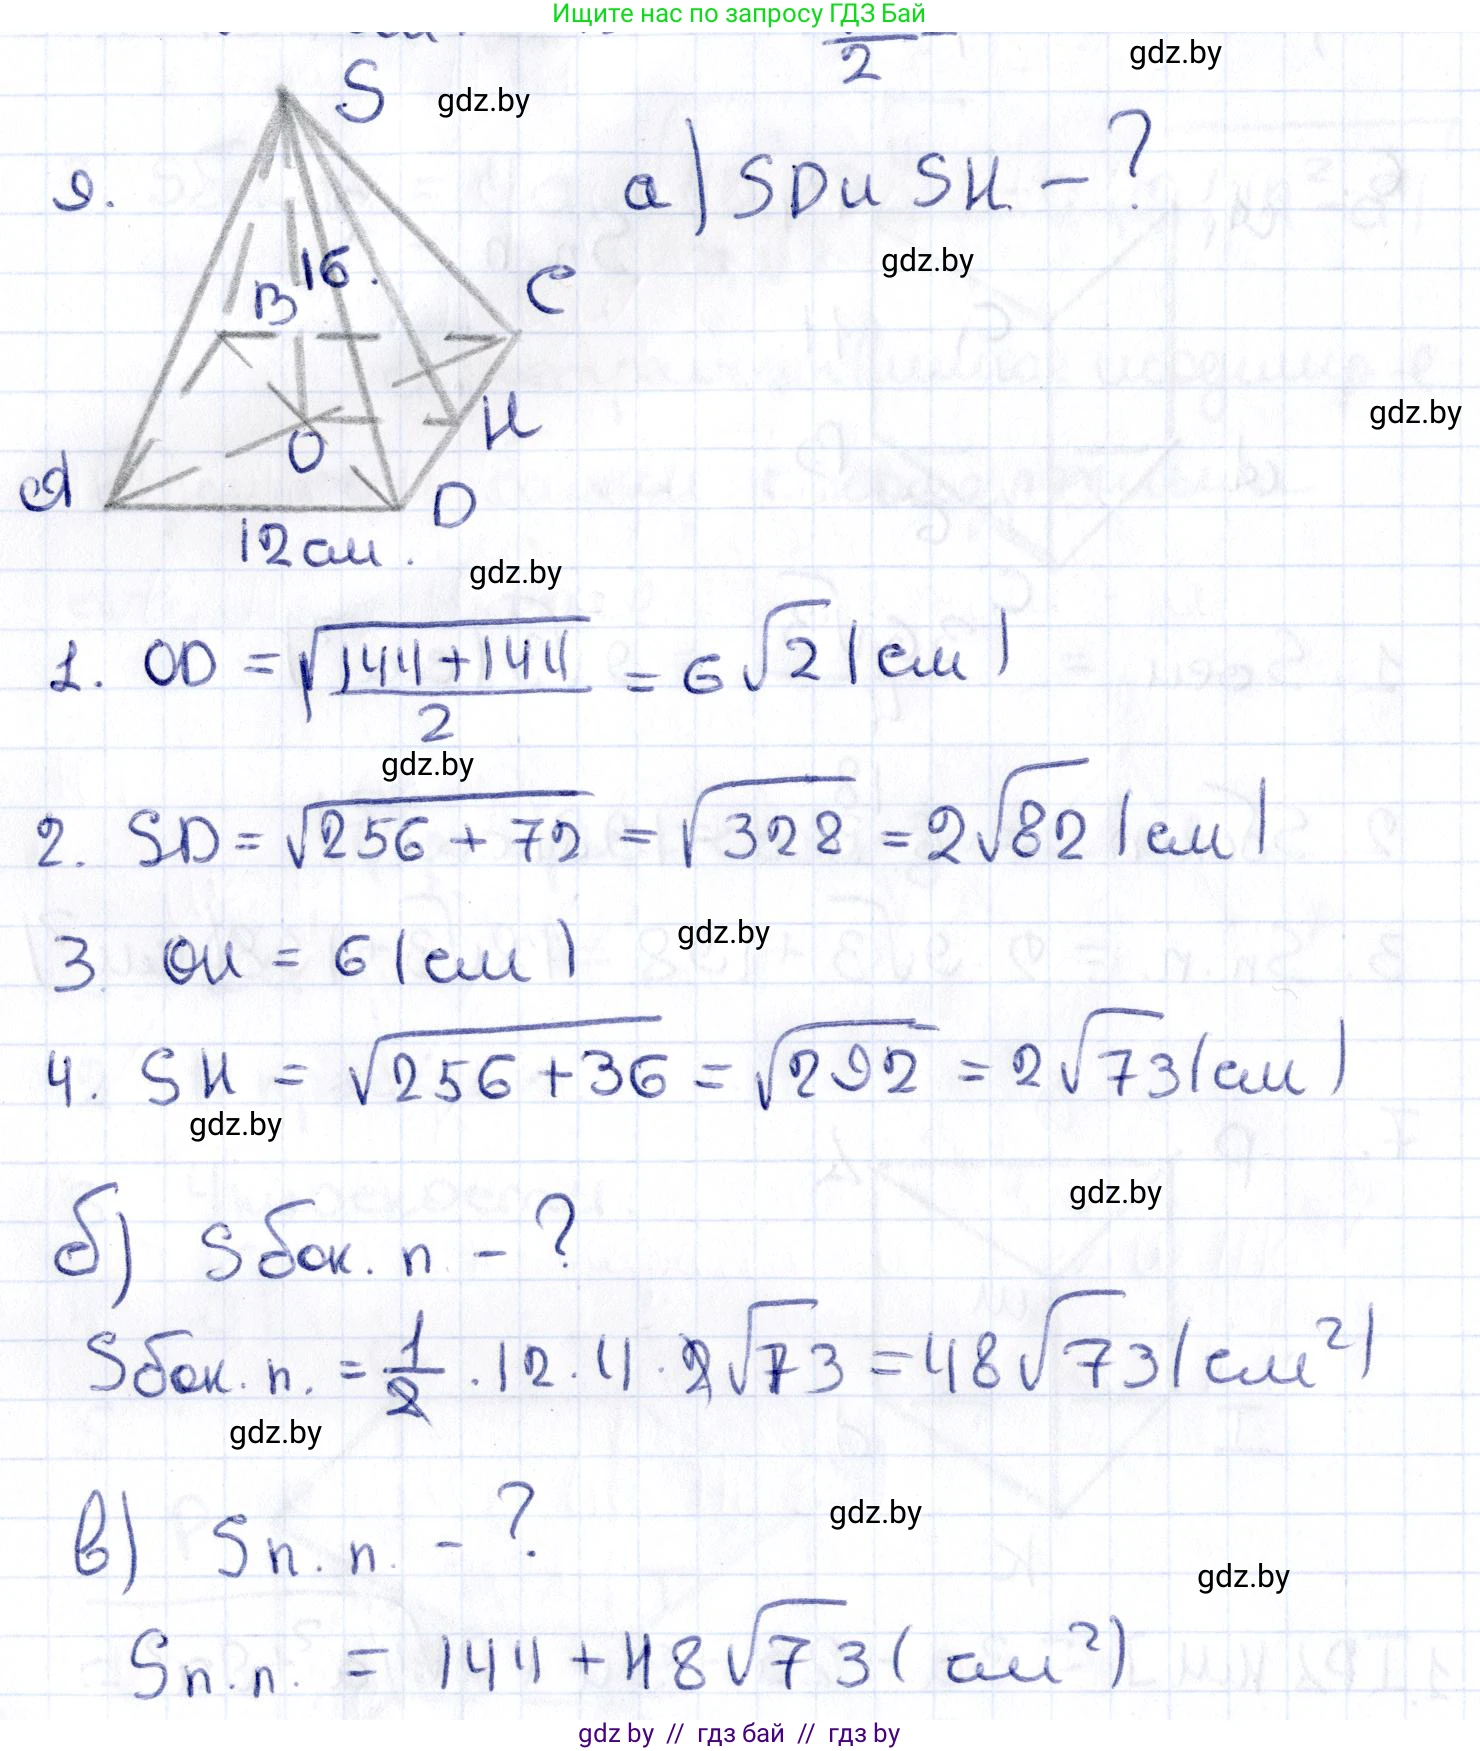 Ищите нас по запросу ГДЗ Бай
2
gdz.by
9.
S
gdz.by
а) SD и SH - ?
gdz.by
16.
B
C
gdz.by
H
O
A
D
12 см.
gdz.by
1. OD = √(144+144)/2 = 6√2 (см)
gdz.by
2. SD = √256 + 72 = √328 = 2√82 (см)
gdz.by
3. OH = 6 (см)
4. SH = √256 + 36 = √292 = 2√73 (см)
gdz.by
gdz.by
б) Sбок. п. - ?
Sбок. п. = 1/2 · 12 · 4 · 2√73 = 48√73 (см²)
gdz.by
в) Sп. п. - ?
gdz.by
gdz.by
Sп. п. = 144 + 48√73 (см²)
gdz by // гдз бай // гдз by